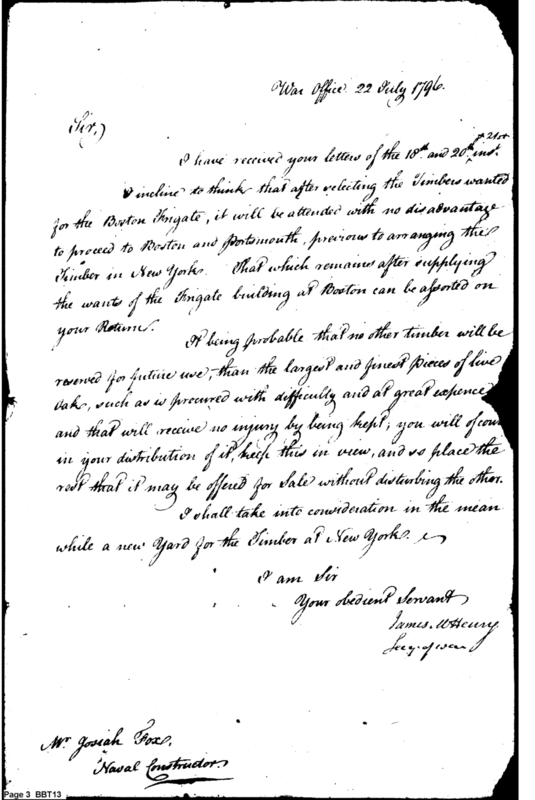 War Office 22 July 1796.
Sir,
I have received your letters of the 18th and 20th & 21st inst.
I incline to think that after selecting the Timbers wanted
for the Boston Frigate, it will be attended with no disadvantage
to proceed to Boston and Portsmouth, previous to arranging the
Timber in New York. That which remains after supplying
the wants of the Frigate building at Boston can be assorted on
your Return.
It being probable that no other timber will be
reserved for future use, than the largest and finest pieces of live
oak, such as is procured with difficulty and at great expence
and that will receive no injury by being kept; you will of cour
in your distribution of it, keep this in view, and so place the
rest that it may be offered for Sale without disturbing the other.
I shall take into consideration in the mean
while a new Yard for the Timber at New York.
I am Sir
Your obedient Servant
James McHenry
Secy. of war
Mr. Josiah Fox,
Naval Constructor
Page 3 BBT13